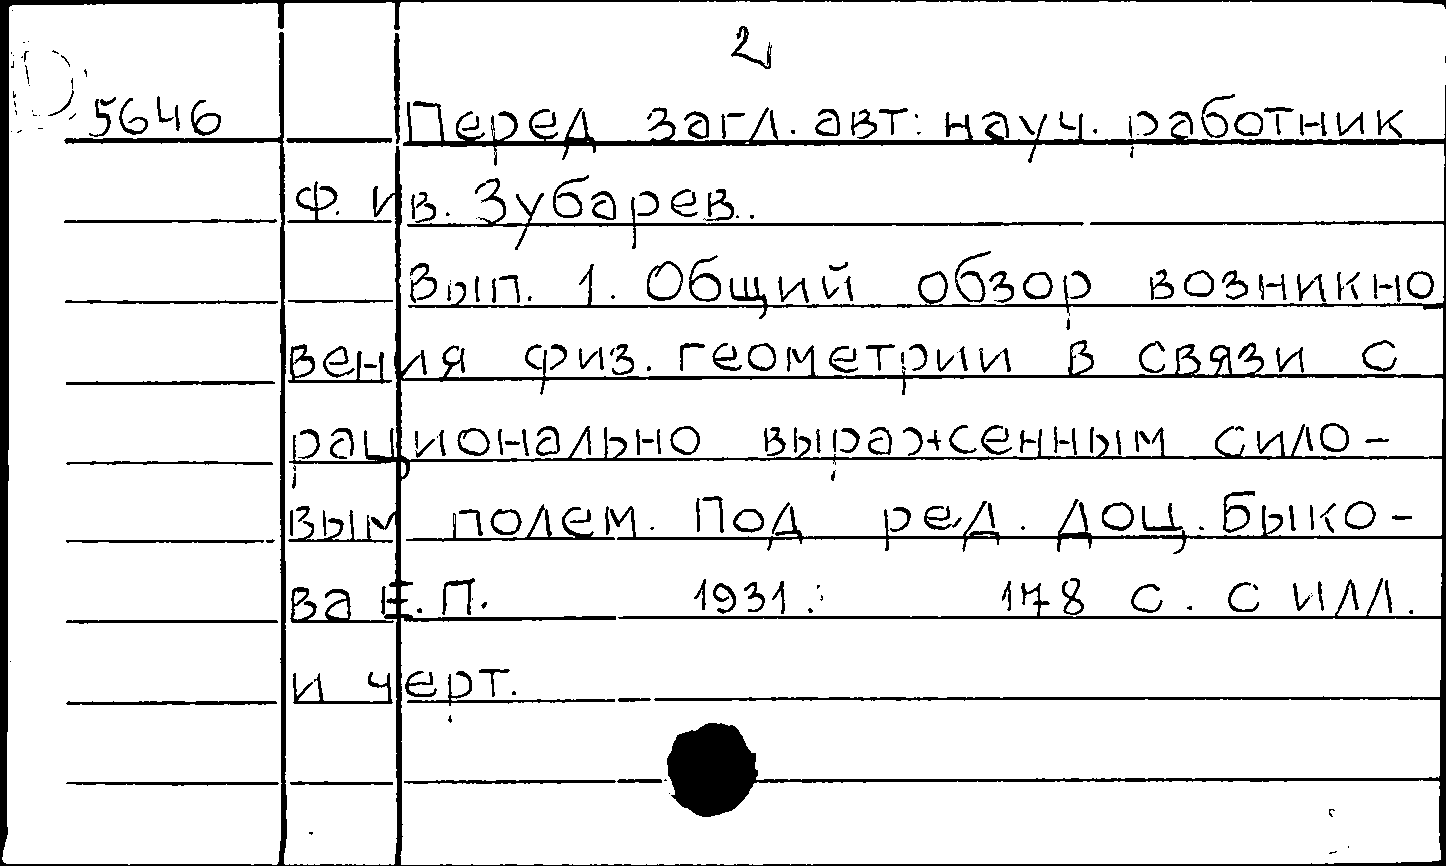 2
D 5646 Перед загл. авт: науч. работник
Ф. Ив. Зубарев.
Вып. 1. Общий обзор возникно
вения физ. геометрии в связи с
рационально выраженным сило-
вым полем. Под ред. доц. Быко-
ва Е. П. 1931. 178 с. с илл.
и черт.